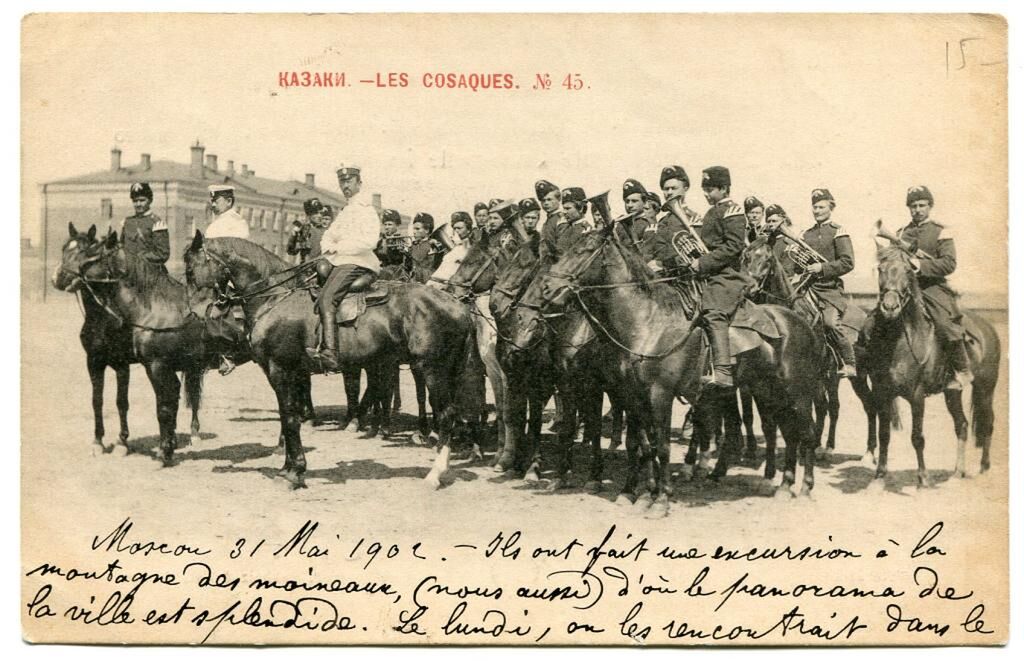 15-
КАЗАКИ. — LES COSAQUES. № 45.
Moscou 31 Mai 1902. — Ils ont fait une excursion à la
montagne des moineaux, (nous aussi) d'où le panorama de
la ville est splendide. Le lundi, on les rencontrait dans le